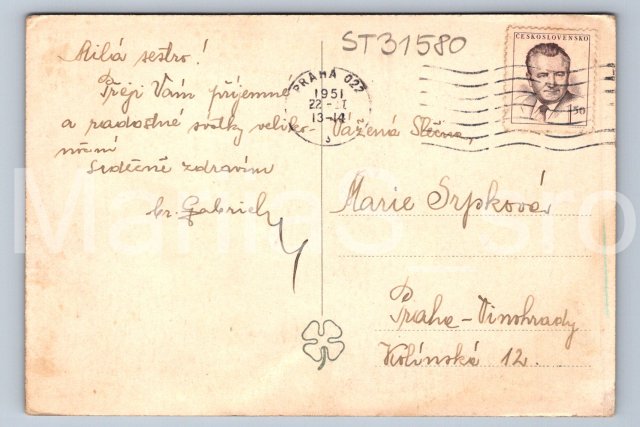 ST31580
Milá sestro!
Přeji Vám příjemné
a radostné svátky veliko-
noční
Srdečně zdravím
br. Gabriel
PRAHA 022
1951
22 -II
13-14
ČESKOSLOVENSKO
1.50
Vážená Slečna,
Marie Srpková
Praha-Vinohrady
Kolínská 12.